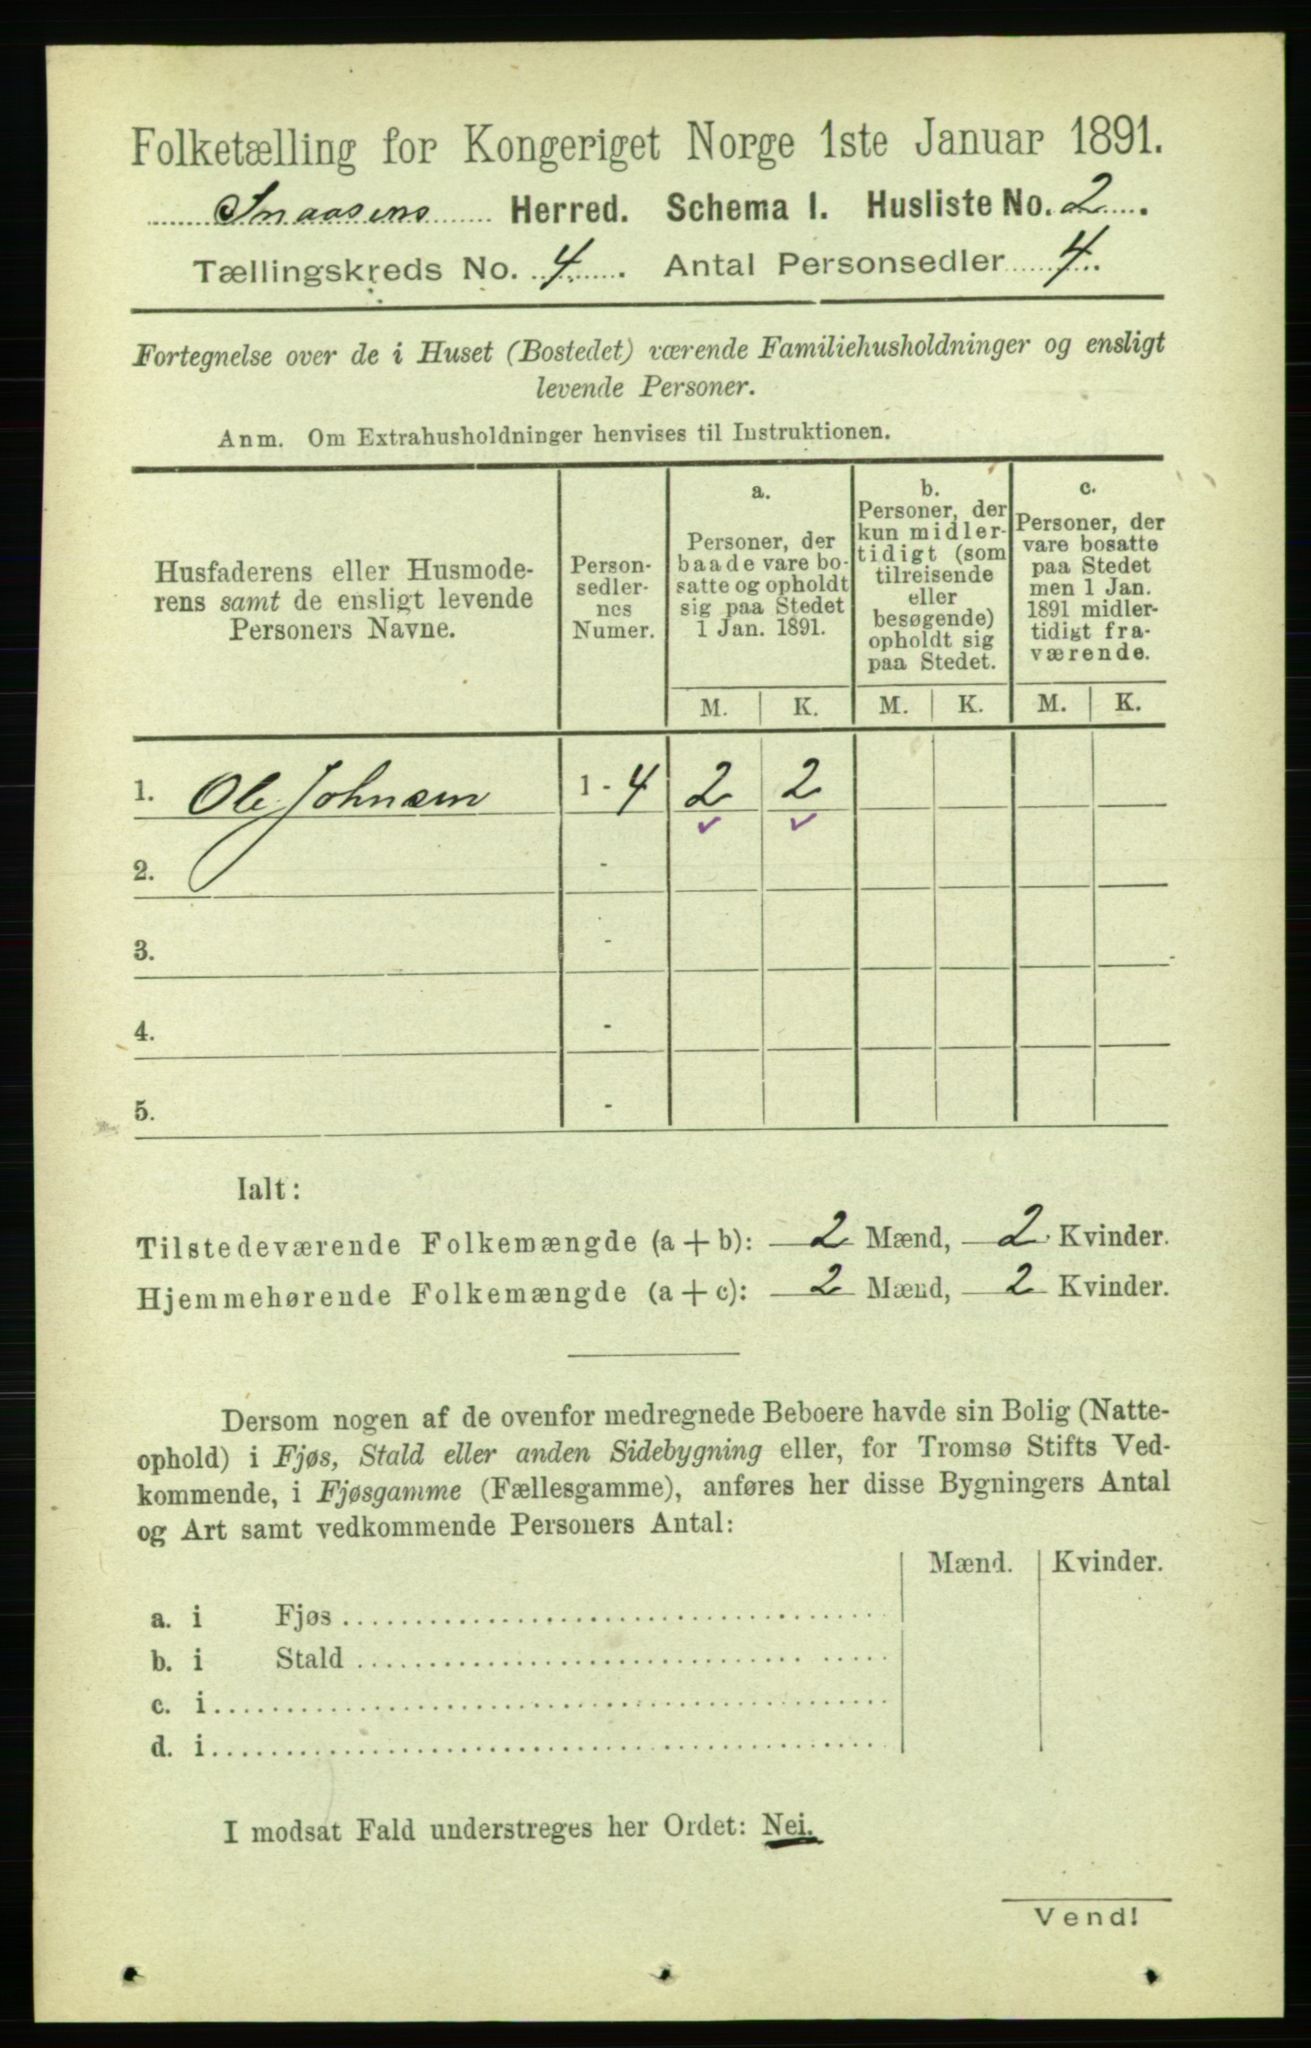 Folketælling for Kongeriget Norge 1ste Januar 1891.
Snaasens Herred. Schema I. Husliste No. 2.
Tællingskreds No. 4. Antal Personsedler 4.
Fortegnelse over de i Huset (Bostedet) værende Familiehusholdninger og ensligt
levende Personer.
Anm. Om Extrahusholdninger henvises til Instruktionen.
Husfaderens eller Husmode-
rens samt de ensligt levende
Personers Navne.
Person-
sedler-
nes
Numer.
a.
Personer, der
baade vare bo-
satte og opholdt
sig paa Stedet
1 Jan. 1891.
b.
Personer, der
kun midler-
tidigt (som
tilreisende
eller
besøgende)
opholdt sig
paa Stedet.
c.
Personer, der
vare bosatte
paa Stedet
men 1 Jan.
1891 midler-
tidigt fra-
værende.
M. K. M. K. M. K.
1. Ole Johnsen 1 - 4 2 2
2. -
3. -
4. -
5. -
Ialt:
Tilstedeværende Folkemængde (a + b): 2 Mænd, 2 Kvinder.
Hjemmehørende Folkemængde (a + c): 2 Mænd, 2 Kvinder.
Dersom nogen af de ovenfor medregnede Beboere havde sin Bolig (Natte-
ophold) i Fjøs, Stald eller anden Sidebygning eller, for Tromsø Stifts Ved-
kommende, i Fjøsgamme (Fællesgamme), anføres her disse Bygningers Antal
og Art samt vedkommende Personers Antal:
Mænd. Kvinder.
a. i Fjøs
b. i Stald
c. i
d. i
I modsat Fald understreges her Ordet: Nei.
Vend!